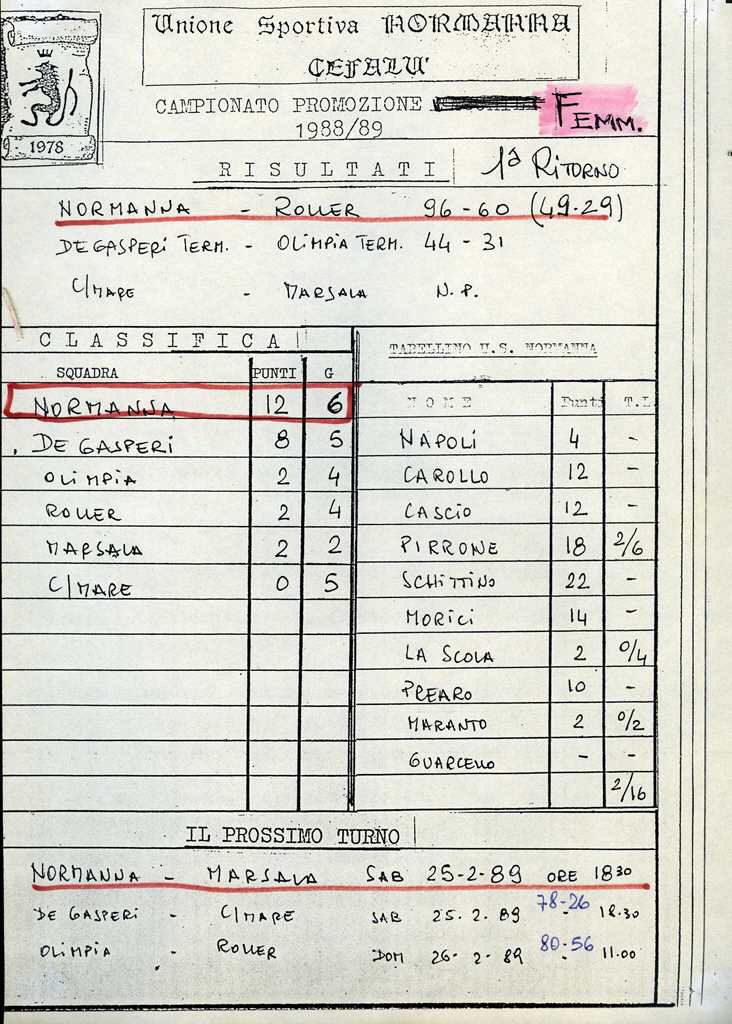 Unione Sportiva NORMANNA
CEFALU'
CAMPIONATO PROMOZIONE FEMM.
1988/89
1978
RISULTATI 1ª RITORNO
NORMANNA - ROLLER 96-60 (49-29)
DE GASPERI TERM. - OLIMPIA TERM. 44-31
C/MARE - MARSALA N.P.
CLASSIFICA
SQUADRA PUNTI G
NORMANNA 12 6
DE GASPERI 8 5
OLIMPIA 2 4
ROLLER 2 4
MARSALA 2 2
C/MARE 0 5
TABELLINO U.S. NORMANNA
NOME Punti T.L.
NAPOLI 4 -
CAROLLO 12 -
CASCIO 12 -
PIRRONE 18 2/6
SCHITTINO 22 -
MORICI 14 -
LA SCOLA 2 0/4
PREARO 10 -
MARANTO 2 0/2
GUARCELLO - -
2/16
IL PROSSIMO TURNO
NORMANNA - MARSALA SAB 25-2-89 ORE 18 30
DE GASPERI - C/MARE SAB 25.2.89 78-26 18.30
OLIMPIA - ROLLER DOM 26-2-89 80-56 11.00